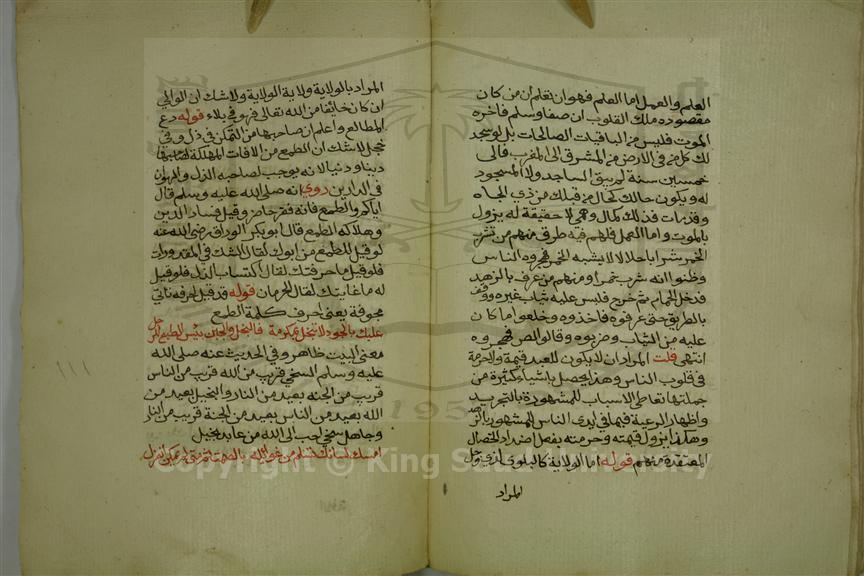 العلم والعمل اما العلم فهو ان يعلم ان من كان
مقصوده ملك القلوب ان صفا وسلم فاخره
الموت فليس من الباقيات الصالحات بل لو سجد
لك كل من في الارض من المشرق الى المغرب فالى
خمسين سنة لا يبقى الساجد ولا المسجود
له ويكون حالك كحال من قبلك من ذي الجاه
وقد مات فذلك كمال وهمي لا حقيقة له يزول
بالموت واما العمل فلهم فيه طرق منهم من شرب
الخمر شرابا حلالا لا يشبه الخمر فهجروه الناس
وظنوا انه شرب خمرا ومنهم من عرف بالزهد
فدخل الحمام ثم خرج فلبس عليه ثياب غيره ووقف
بالطريق حتى عرفوه فاخذوه وخلعوا ما كان
عليه من الثياب وضربوه وقالوا لص فهجروه
انتهى قلت المراد ان لا يكون للعبد قيمة ولا حرمة
في قلوب الناس وهذا يحصل باشياء كثيرة من
جملتها تعاطي الاسباب المشهودة بالتجريد
واظهار الرغبة فيما في ايدي الناس المشهود بالزهد
وهذا يزول قيمته وحرمته بفعل اضداد الخصال
المعتقدة منهم قوله اما الولاية كالبلوى
المراد
المراد بالولاية ولاية الولاية ولا شك ان الوالي
ان كان خائفا من الله تعالى فهو في بلاء قوله دع
المطالع واعلم ان صاحبها من التمكن في ذل وفي
خجل لا شك ان الطمع من الافات المهلكة لصاحبها
دينا ودنيا لانه يوجب لصاحبه الذل والهوان
في الدارين روي انه صلى الله عليه وسلم قال
اياكم والطمع فانه فقر حاضر وقيل فساد الدين
وهلاكه الطمع قال ابو بكر الوراق رضي الله عنه
لو قيل للطمع من ابوك لقال الشك في المقدورات
فلو قيل ما حرفتك لقال اكتساب الذل فلو قيل
له ما غايتك لقال الحرمان قوله قد قيل احرفه تاتي
مجوفة يعني احرف كلمة الطمع
عليك بالجود لا تبخل بمكرمة فالبخل والجبن بئس الطبع
معنى البيت ظاهر وفي الحديث عنه صلى الله
عليه وسلم السخي قريب من الله قريب من الناس
قريب من الجنه بعيد من النار والبخيل بعيد من
الله بعيد من الناس بعيد من الجنة قريب من النار
وجاهل سخي احب الى الله من عابد بخيل
امسك لسانك تسلم من غوائله بالصمت
١١١
Copyright © King Saud University
195